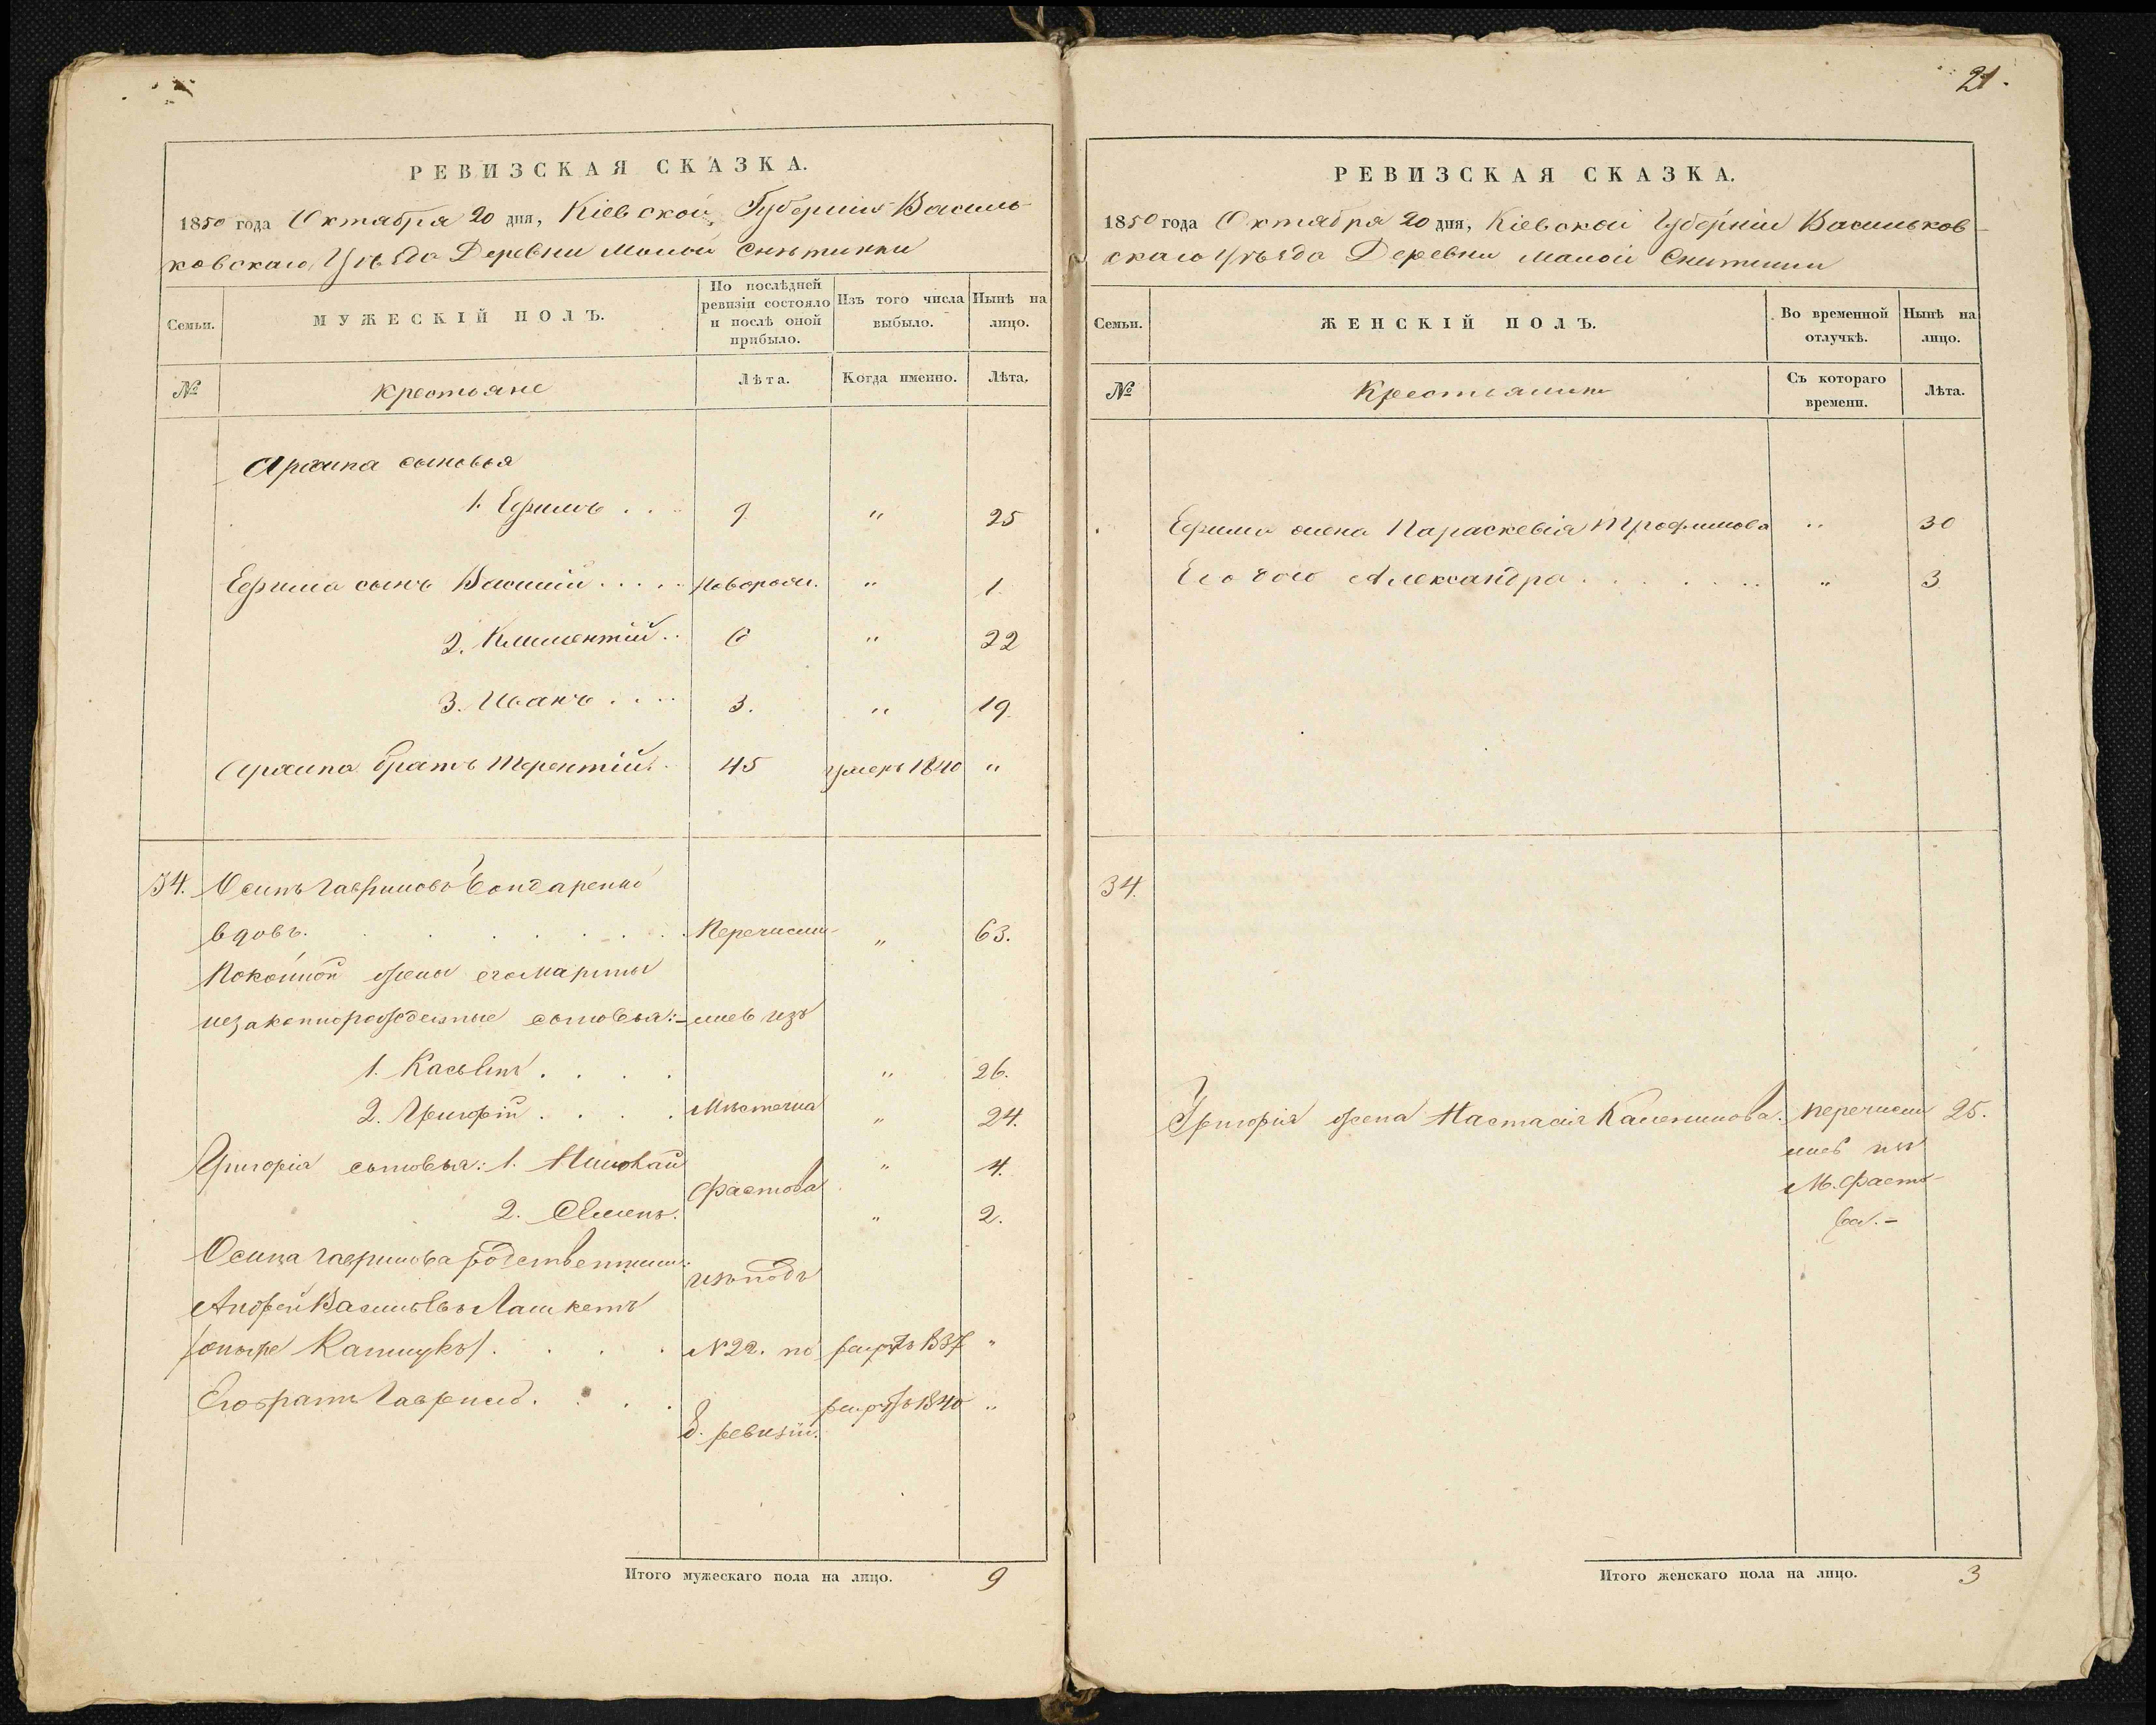 21.
РЕВИЗСКАЯ СКАЗКА.
1850 года Октября 20 дня, Кіевской Губерніи Василь-
ковскаго Уѣзда Деревни Малой Снѣтинки
Семьи.
МУЖЕСКІЙ ПОЛЪ.
По послѣдней ревизіи состояло и послѣ оной прибыло.
Изъ того числа выбыло.
Нынѣ на лицо.
№
Крестьяне
Лѣта.
Когда именно.
Лѣта.
Архипа сыновья
1. Ефимъ . . . 9. " 25
Ефима сынъ Василій . . . . . новорож. " 1.
2. Климентій . . 6 " 22
3. Иванъ . . . . 3. " 19.
Архипа братъ Терентій . . 45 умеръ 1840 "
34. Осипъ Гавриловъ Бондаренко
вдовъ. . . . . . . . Перечисли- " 63.
Покойной жены его Марты
незаконнорожденные сыновья: - лись изъ
1. Касьянъ . . . . " 26.
2. Григорій . . . . Мѣстечка " 24.
Григорія сыновья: 1. Николай " 4.
Фастова
2. Семенъ. " 2.
Осипа Гаврилова родственники:
изъ подъ
Андрей Васильевъ Лашкетъ
. . . . №22. по рекрутъ 1837 "
Его братъ Гаврило . . . . рекрутъ 1840 "
8. ревизіи.
Итого мужескаго пола на лицо. 9
РЕВИЗСКАЯ СКАЗКА.
1850 года Октября 20 дня, Кіевской Губерніи Васильков-
скаго Уѣзда Деревни Малой Снитинки
Семьи.
ЖЕНСКІЙ ПОЛЪ.
Во временной отлучкѣ.
Нынѣ на лицо.
№
Крестьянки
Съ котораго времени.
Лѣта.
Ефима жена Параскевія Трофимова " 30
Его дочь Александра . . . . . . " 3
34.
Григорія жена Настасія Каленикова. перечисли 25.
лись изъ
М. Фасто-
ва. -
Итого женскаго пола на лицо. 3